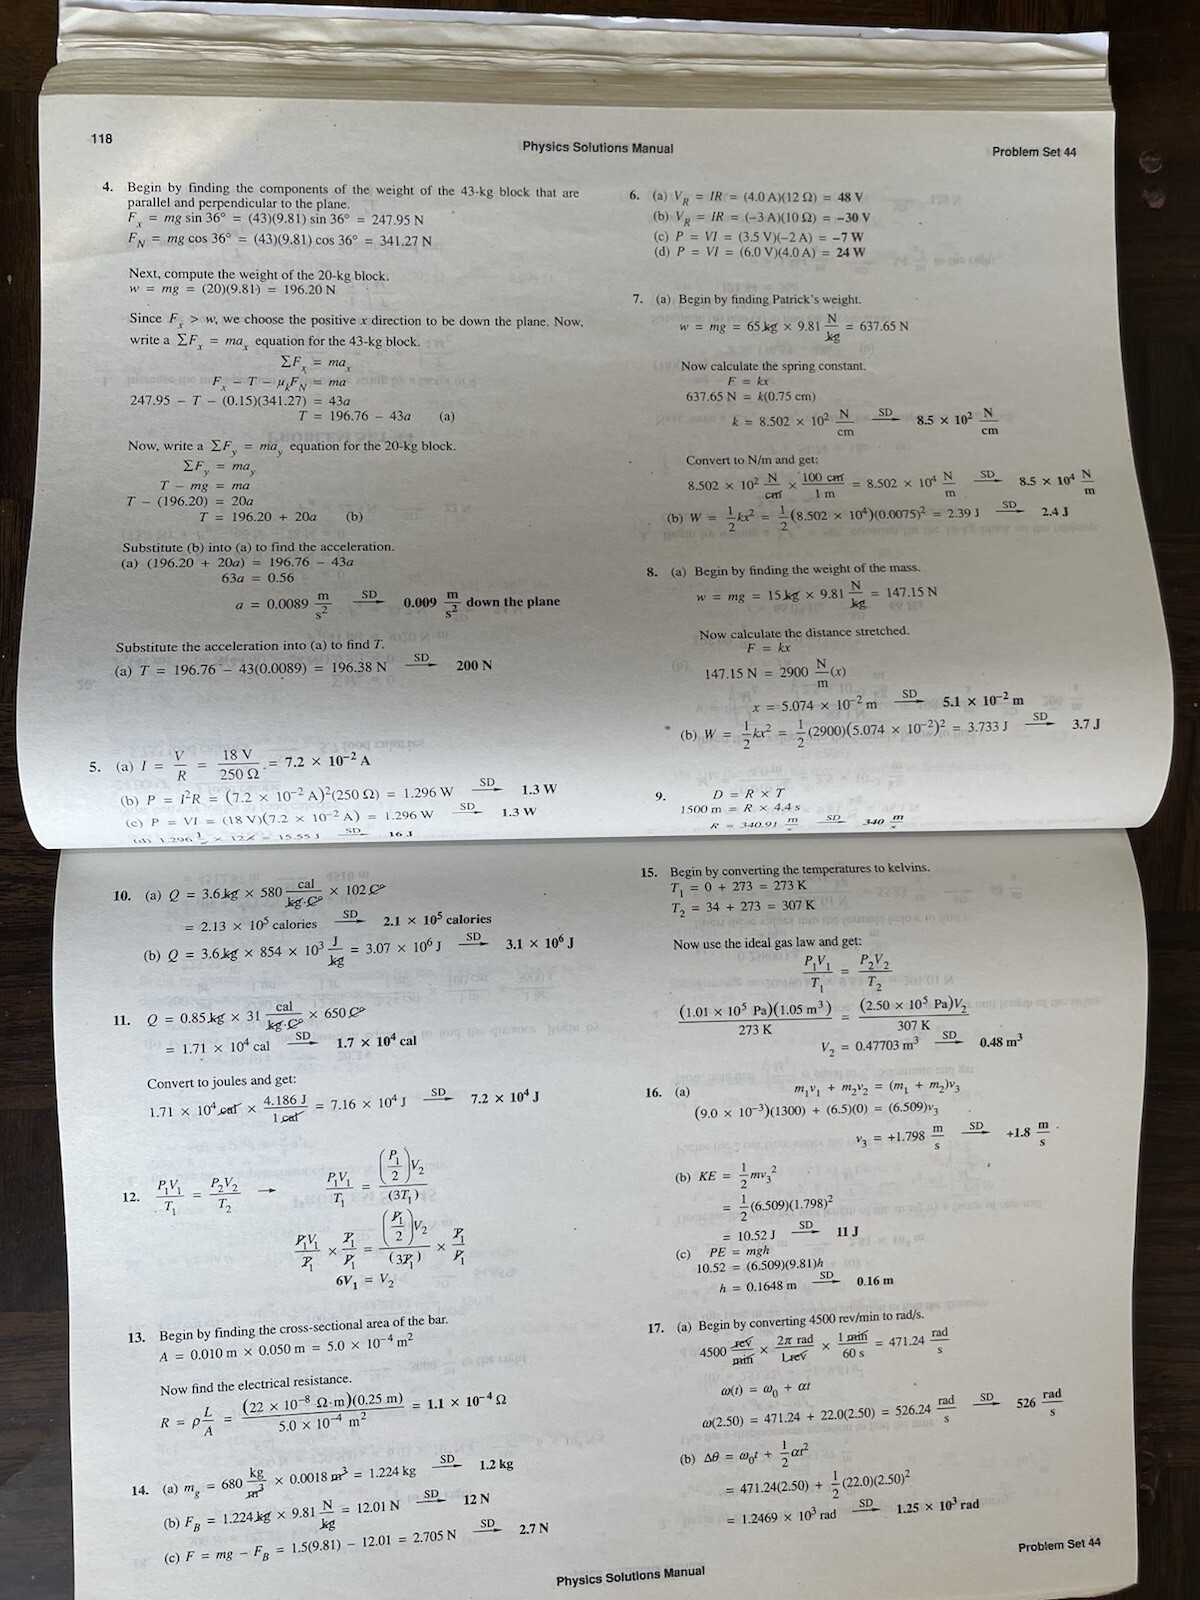 118
Physics Solutions Manual
Problem Set 44
4. Begin by finding the components of the weight of the 43-kg block that are
parallel and perpendicular to the plane.
Fₓ = mg sin 36° = (43)(9.81) sin 36° = 247.95 N
F_N = mg cos 36° = (43)(9.81) cos 36° = 341.27 N
Next, compute the weight of the 20-kg block.
w = mg = (20)(9.81) = 196.20 N
Since Fₓ > w, we choose the positive x direction to be down the plane. Now,
write a ΣFₓ = maₓ equation for the 43-kg block.
ΣFₓ = maₓ
Fₓ − T − μₖF_N = ma
247.95 − T − (0.15)(341.27) = 43a
T = 196.76 − 43a (a)
Now, write a ΣF_y = ma_y equation for the 20-kg block.
ΣF_y = ma_y
T − mg = ma
T − (196.20) = 20a
T = 196.20 + 20a (b)
Substitute (b) into (a) to find the acceleration.
(a) (196.20 + 20a) = 196.76 − 43a
63a = 0.56
a = 0.0089 m/s² SD→ 0.009 m/s² down the plane
Substitute the acceleration into (a) to find T.
(a) T = 196.76 − 43(0.0089) = 196.38 N SD→ 200 N
5. (a) I = V/R = 18 V/250 Ω = 7.2 × 10⁻² A
(b) P = I²R = (7.2 × 10⁻² A)²(250 Ω) = 1.296 W SD→ 1.3 W
(c) P = VI = (18 V)(7.2 × 10⁻² A) = 1.296 W SD→ 1.3 W
(d) 1.296 × 12 = 15.55 J SD→ 16 J
6. (a) V_R = IR = (4.0 A)(12 Ω) = 48 V
(b) V_R = IR = (−3 A)(10 Ω) = −30 V
(c) P = VI = (3.5 V)(−2 A) = −7 W
(d) P = VI = (6.0 V)(4.0 A) = 24 W
7. (a) Begin by finding Patrick's weight.
w = mg = 65 kg × 9.81 N/kg = 637.65 N
Now calculate the spring constant.
F = kx
637.65 N = k(0.75 cm)
k = 8.502 × 10² N/cm SD→ 8.5 × 10² N/cm
Convert to N/m and get:
8.502 × 10² N/cm × 100 cm/1 m = 8.502 × 10⁴ N/m SD→ 8.5 × 10⁴ N/m
(b) W = 1/2 kx² = 1/2 (8.502 × 10⁴)(0.0075)² = 2.39 J SD→ 2.4 J
8. (a) Begin by finding the weight of the mass.
w = mg = 15 kg × 9.81 N/kg = 147.15 N
Now calculate the distance stretched.
F = kx
147.15 N = 2900 N/m (x)
x = 5.074 × 10⁻² m SD→ 5.1 × 10⁻² m
(b) W = 1/2 kx² = 1/2 (2900)(5.074 × 10⁻²)² = 3.733 J SD→ 3.7 J
9. D = R × T
1500 m = R × 4.4 s
R = 340.91 m/s SD→ 340 m/s
10. (a) Q = 3.6 kg × 580 cal/kg·C° × 102 C°
= 2.13 × 10⁵ calories SD→ 2.1 × 10⁵ calories
(b) Q = 3.6 kg × 854 × 10³ J/kg = 3.07 × 10⁶ J SD→ 3.1 × 10⁶ J
11. Q = 0.85 kg × 31 cal/kg·C° × 650 C°
= 1.71 × 10⁴ cal SD→ 1.7 × 10⁴ cal
Convert to joules and get:
1.71 × 10⁴ cal × 4.186 J/1 cal = 7.16 × 10⁴ J SD→ 7.2 × 10⁴ J
12. P₁V₁/T₁ = P₂V₂/T₂ → P₁V₁/T₁ = (P₁/2)V₂/(3T₁)
P₁V₁/P₁ × P₁/P₁ = (P₁/2)V₂/(3P₁) × P₁/P₁
6V₁ = V₂
13. Begin by finding the cross-sectional area of the bar.
A = 0.010 m × 0.050 m = 5.0 × 10⁻⁴ m²
Now find the electrical resistance.
R = ρ L/A = (22 × 10⁻⁸ Ω·m)(0.25 m)/5.0 × 10⁻⁴ m² = 1.1 × 10⁻⁴ Ω
14. (a) m_g = 680 kg/m³ × 0.0018 m³ = 1.224 kg SD→ 1.2 kg
(b) F_B = 1.224 kg × 9.81 N/kg = 12.01 N SD→ 12 N
(c) F = mg − F_B = 1.5(9.81) − 12.01 = 2.705 N SD→ 2.7 N
15. Begin by converting the temperatures to kelvins.
T₁ = 0 + 273 = 273 K
T₂ = 34 + 273 = 307 K
Now use the ideal gas law and get:
P₁V₁/T₁ = P₂V₂/T₂
(1.01 × 10⁵ Pa)(1.05 m³)/273 K = (2.50 × 10⁵ Pa)V₂/307 K
V₂ = 0.47703 m³ SD→ 0.48 m³
16. (a) m₁v₁ + m₂v₂ = (m₁ + m₂)v₃
(9.0 × 10⁻³)(1300) + (6.5)(0) = (6.509)v₃
v₃ = +1.798 m/s SD→ +1.8 m/s
(b) KE = 1/2 mv₃²
= 1/2 (6.509)(1.798)²
= 10.52 J SD→ 11 J
(c) PE = mgh
10.52 = (6.509)(9.81)h
h = 0.1648 m SD→ 0.16 m
17. (a) Begin by converting 4500 rev/min to rad/s.
4500 rev/min × 2π rad/1 rev × 1 min/60 s = 471.24 rad/s
ω(t) = ω₀ + αt
ω(2.50) = 471.24 + 22.0(2.50) = 526.24 rad/s SD→ 526 rad/s
(b) Δθ = ω₀t + 1/2 αt²
= 471.24(2.50) + 1/2 (22.0)(2.50)²
= 1.2469 × 10³ rad SD→ 1.25 × 10³ rad
Physics Solutions Manual
Problem Set 44